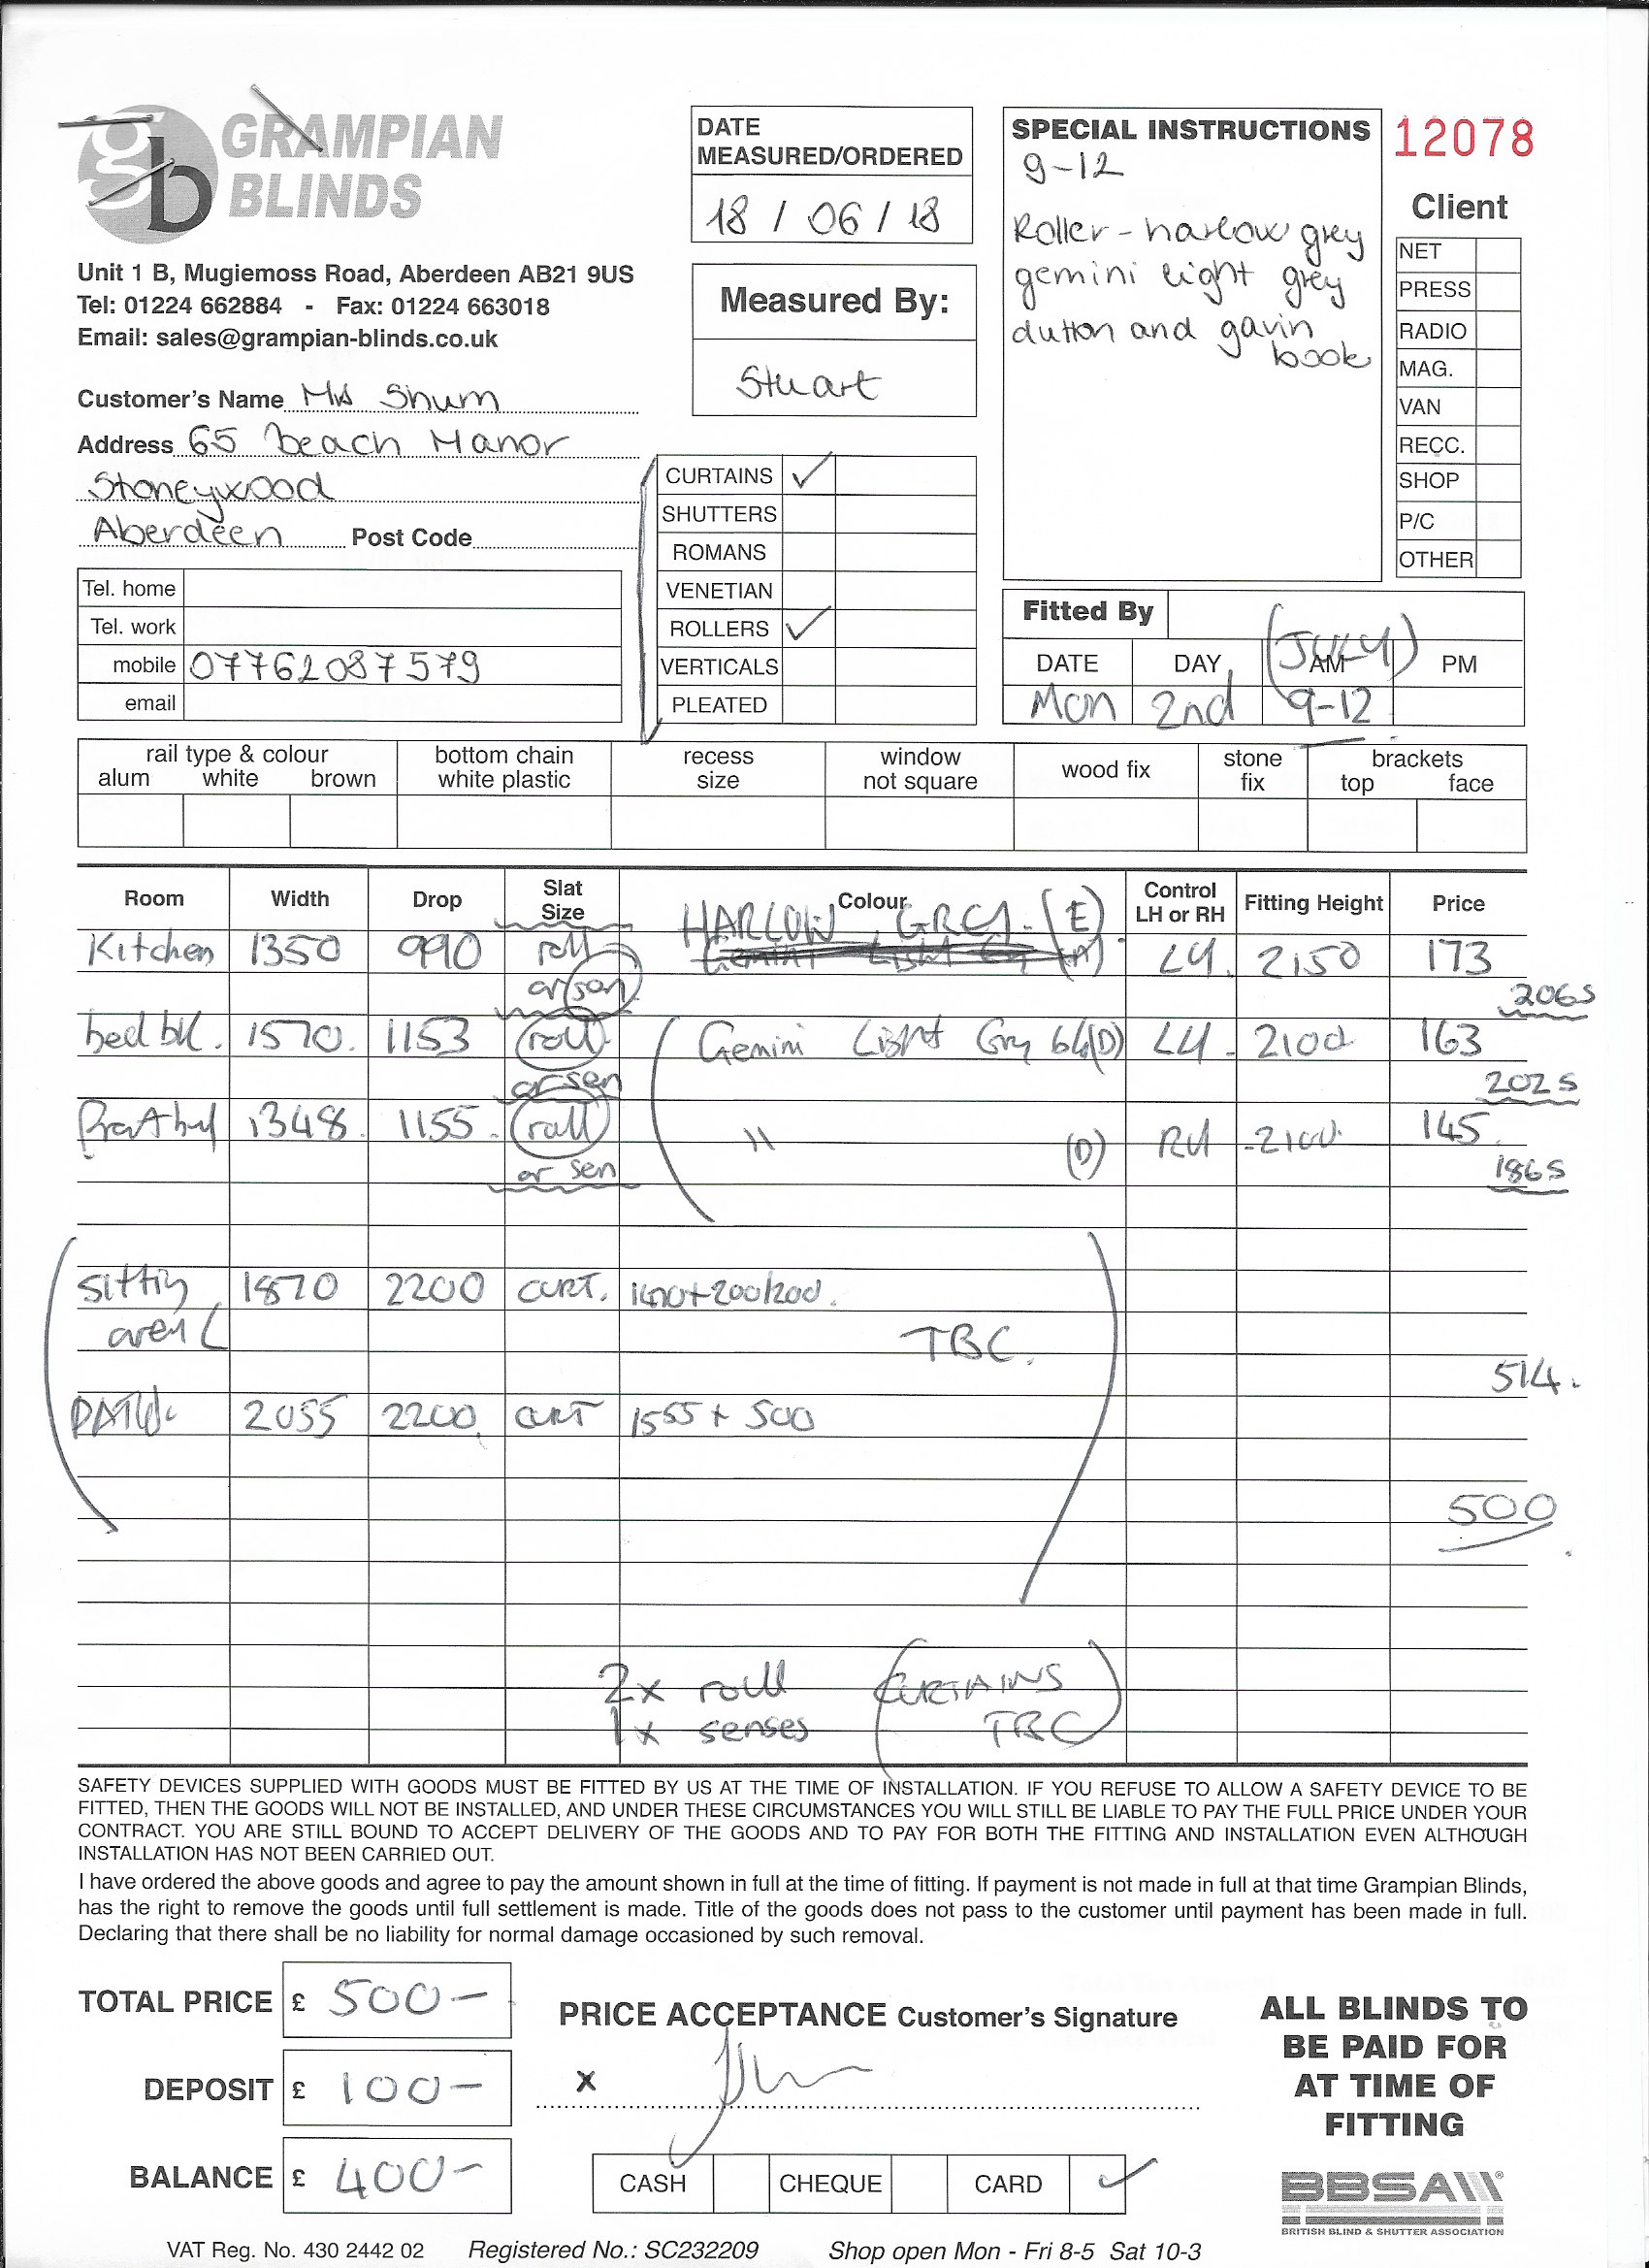 gb GRAMPIAN
BLINDS
Unit 1 B, Mugiemoss Road, Aberdeen AB21 9US
Tel: 01224 662884 - Fax: 01224 663018
Email: sales@grampian-blinds.co.uk
Customer's Name Mrs Shum
Address 65 beach Manor
Stoneywood
Aberdeen Post Code
Tel. home
Tel. work
mobile 07762087579
email
DATE
MEASURED/ORDERED
18 / 06 / 18
Measured By:
Stuart
CURTAINS ✓
SHUTTERS
ROMANS
VENETIAN
ROLLERS ✓
VERTICALS
PLEATED
SPECIAL INSTRUCTIONS
9-12
Roller - harlow grey
gemini light grey
dutton and gavin
book
12078
Client
NET
PRESS
RADIO
MAG.
VAN
RECC.
SHOP
P/C
OTHER
Fitted By (JULY)
DATE DAY AM PM
Mon 2nd 9-12
rail type & colour bottom chain recess window wood fix stone brackets
alum white brown white plastic size not square fix top face
Room Width Drop Slat Size Colour Control LH or RH Fitting Height Price
HARLOW GREY. (E)
Kitchen 1350 990 roll Gemini Light Gy LH. 2150 173
or sen 206S
bed bk. 1570. 1153 roll Gemini Light Gry (D) LH - 2100 163
or sen 202S
1348. 1155. roll " (D) RH -2100. 145.
or sen 186S
sittin 1870 2200 CURT. 1470+200/200.
area TBC.
514.
PATIO. 2055 2200 CURT 1555 + 500
500
2x roll (CURTAINS
1x senses TBC)
SAFETY DEVICES SUPPLIED WITH GOODS MUST BE FITTED BY US AT THE TIME OF INSTALLATION. IF YOU REFUSE TO ALLOW A SAFETY DEVICE TO BE
FITTED, THEN THE GOODS WILL NOT BE INSTALLED, AND UNDER THESE CIRCUMSTANCES YOU WILL STILL BE LIABLE TO PAY THE FULL PRICE UNDER YOUR
CONTRACT. YOU ARE STILL BOUND TO ACCEPT DELIVERY OF THE GOODS AND TO PAY FOR BOTH THE FITTING AND INSTALLATION EVEN ALTHOUGH
INSTALLATION HAS NOT BEEN CARRIED OUT.
I have ordered the above goods and agree to pay the amount shown in full at the time of fitting. If payment is not made in full at that time Grampian Blinds,
has the right to remove the goods until full settlement is made. Title of the goods does not pass to the customer until payment has been made in full.
Declaring that there shall be no liability for normal damage occasioned by such removal.
TOTAL PRICE £ 500-
DEPOSIT £ 100-
BALANCE £ 400-
PRICE ACCEPTANCE Customer's Signature
x
CASH CHEQUE CARD ✓
ALL BLINDS TO
BE PAID FOR
AT TIME OF
FITTING
BBSA
BRITISH BLIND & SHUTTER ASSOCIATION
VAT Reg. No. 430 2442 02 Registered No.: SC232209 Shop open Mon - Fri 8-5 Sat 10-3